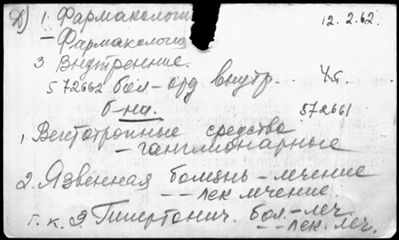 Д) 1. Фармакологи 12.2.62.
– Фармакологи
3 Внутренние.
572662 бол-орд внутр. Ч.
б-ни. 572661
1, Вегетотропные средства
– ганглионарные
2. Язвенная болезнь – лечение
– – лек лечение.
Г. к. Э. Гипертонич. бол. – леч.
– – лек. леч.